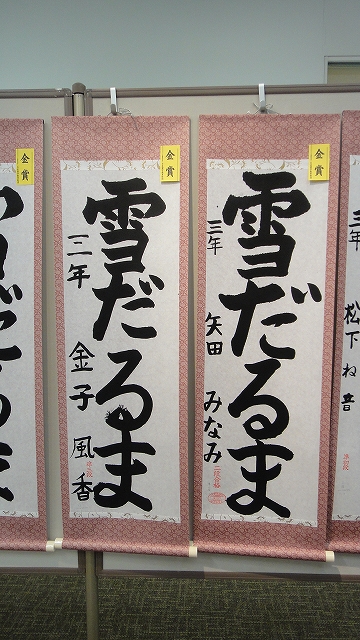 三年 松下 ね音
金賞
雪だるま
三年 矢田 みなみ
金賞
雪だるま
三年 金子 風香
金賞